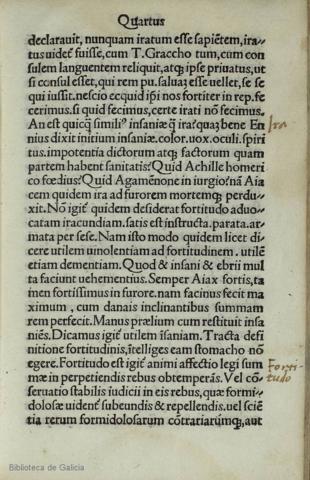 Quartus
declarauit, nunquam iratum esse sapiẽtem, ira⸗
tus uidet᷑ fuisse, cum T. Graccho tum, cum con
sulem languentem reliquit, atq; ipse priuatus, ut
si consul esset, qui rem pu. saluaʒ esse uellet, se se
qui iussit. nescio ecquid ip̃i nos fortiter in rep. fe
cerimus. si quid fecimus, certe irati nõ fecimus.
An est quicq̃ simili⁹ insaniæ q̃ ira? quaʒ bene En
nius dixit initium insaniæ. color. uox. oculi. spiri
tus. impotentia dictorum atq; factorum quam
partem habent sanitatis? Quid Achille homeri
co fœdius? Quid Agamẽnone in iurgio? nã Aia
cem quidem ira ad furorem mortemq; perdu⸗
xit. Nõ igit᷑ quidem desiderat fortitudo aduo⸗
catam iracundiam. satis est instructa. parata. ar
mata per sese. Nam isto modo quidem licet di
cere utilem uinolentiam ad fortitudinem. utilẽ
etiam dementiam. Quod & insani & ebrii mul
ta faciunt uehementius. Semper Aiax fortis, ta
men fortissimus in furore. nam facinus fecit ma
ximum, cum danais inclinantibus summam
rem perfecit. Manus prælium cum restituit insa
niẽs. Dicamus igit᷑ utilem ĩsaniam. Tracta defi
nitione fortitudinis, ĩtelliges eam stomacho nõ
egere. Fortitudo est igit᷑ animi affectio legi sum
mæ in perpetiendis rebus obtemperãs. Vel cõ⸗
seruatio stabilis iudicii in eis rebus, quæ formi⸗
dolosæ uident᷑ subeundis & repellendis. uel sciẽ
tia rerum formidolosarum cõtrariarũmq;, aut
Ira
Forti-
tudo
Biblioteca de Galicia